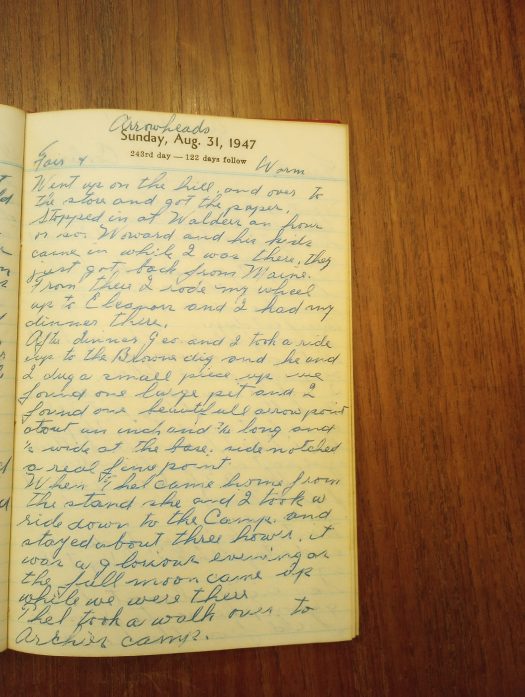 Arrowheads
Sunday, Aug. 31, 1947
243rd day — 122 days follow
Fair & Warm
Went up on the hill, and over to
the store and got the paper.
Stopped in at Walders an hour
or so. Woward and his kids
came in while I was there, they
just got back from Maine.
From there I rode my wheel
up to Eleanors and I had my
dinner there.
After dinner Geo and I took a ride
up to the Browne dig and he and
I dug a small piece up we
found one large pit and I
found one beautifull arrow point
about an inch and ¾ long and
½ wide at the base. side notched
a real fine point
When Thel came home from
the stand she and I took a
ride down to the Camp. and
stayed about three hours, it
was a glorious evening as
the full moon came up
while we were there
Thel took a walk over to
Archies camp.